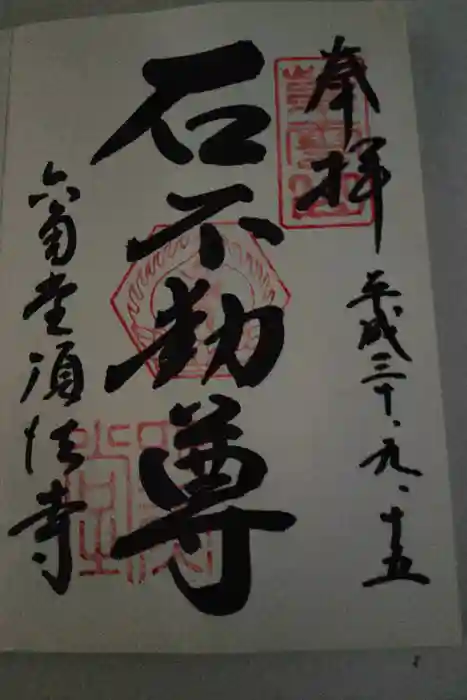 奉拝
平成三十、九、十五
石不動尊
六角堂頂法寺